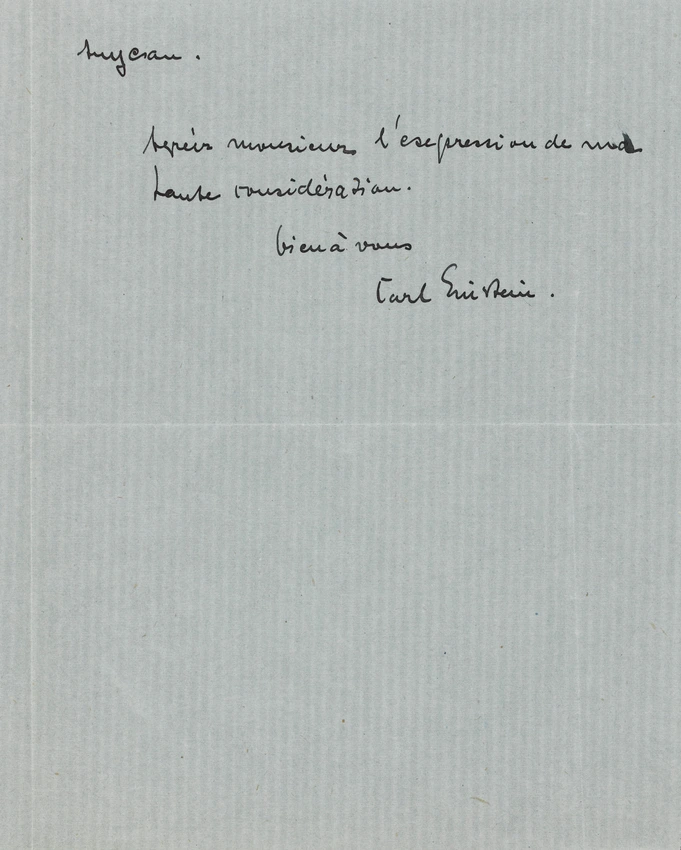 agréez monsieur l'expression de ma
haute considération.
bien à vous
Carl Einstein.